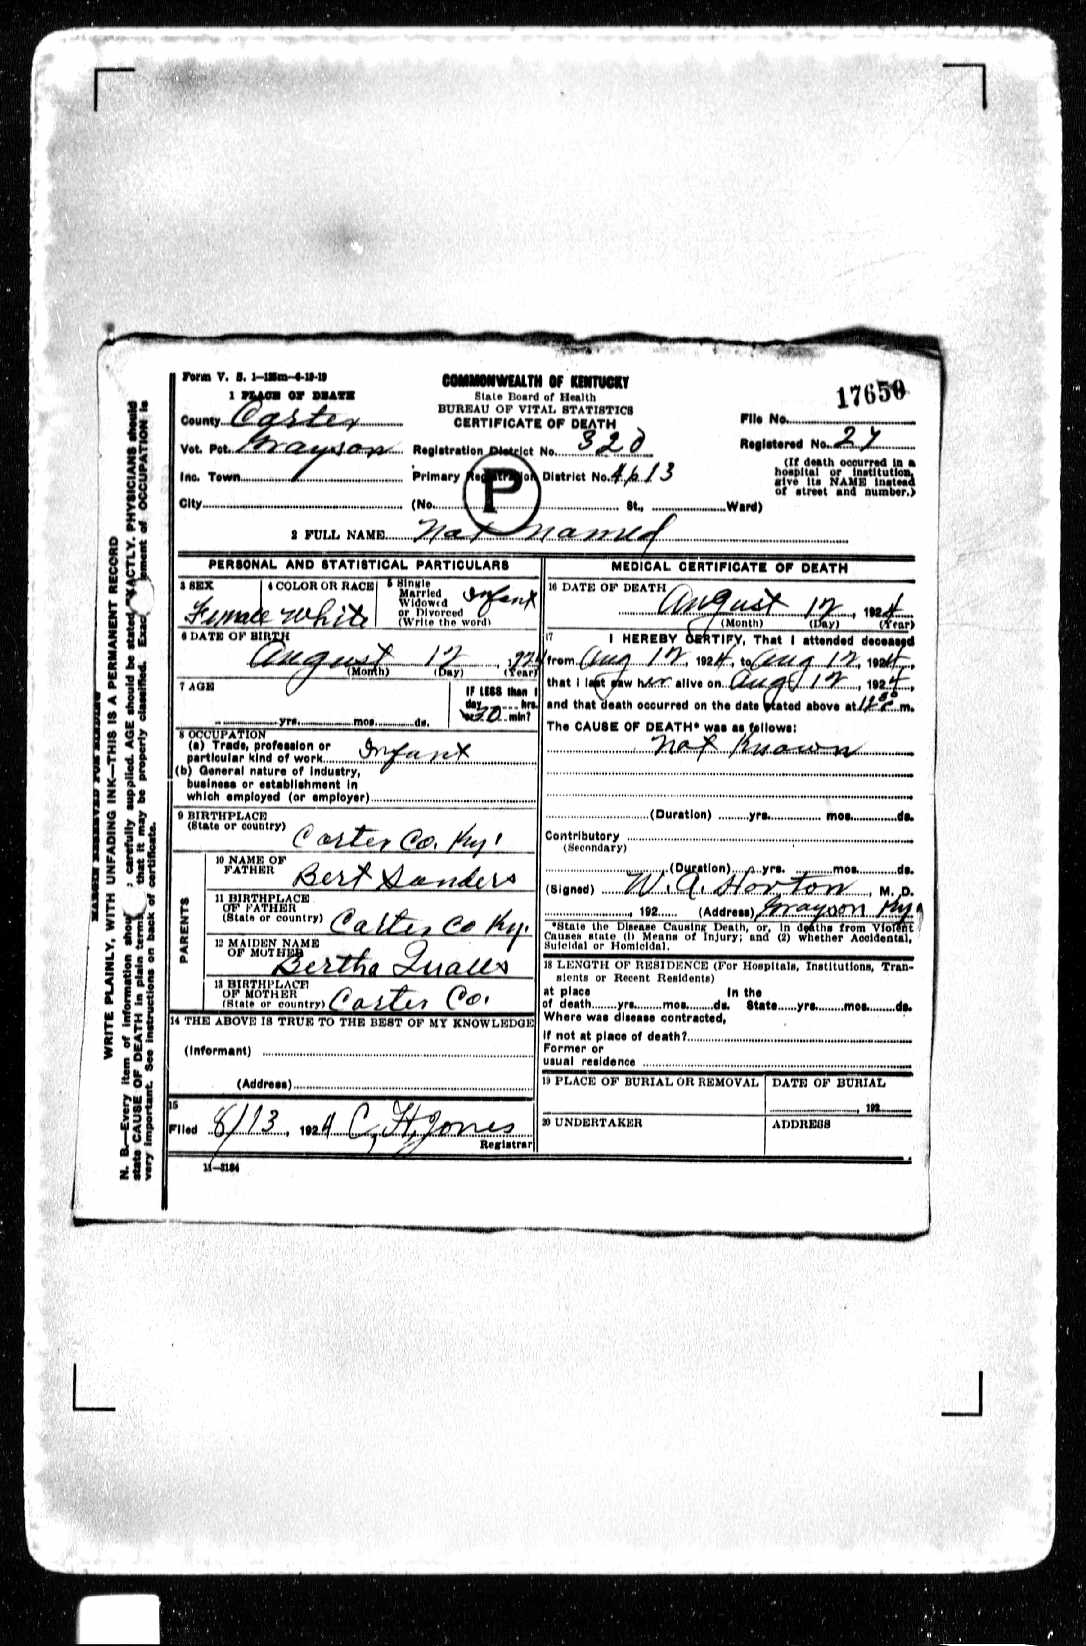 Form V. S. 1—125m—6-19-19
COMMONWEALTH OF KENTUCKY
State Board of Health
BUREAU OF VITAL STATISTICS
CERTIFICATE OF DEATH
17650
1 PLACE OF DEATH
County Carter
File No.
Vot. Pct. Grayson
Registration District No. 320
Registered No. 27
Inc. Town
Primary Registration District No. 4613
P
(If death occurred in a
hospital or institution,
give its NAME instead
of street and number.)
City
(No. St., Ward)
2 FULL NAME Not Named
PERSONAL AND STATISTICAL PARTICULARS
3 SEX
Female
4 COLOR OR RACE
White
5 Single
Married
Widowed
or Divorced
(Write the word)
Infant
6 DATE OF BIRTH
August 12, 1924
(Month) (Day) (Year)
7 AGE
yrs. mos. ds.
IF LESS than 1
day hrs.
or 20 min?
8 OCCUPATION
(a) Trade, profession or
particular kind of work Infant
(b) General nature of industry,
business or establishment in
which employed (or employer)
9 BIRTHPLACE
(State or country)
Carter Co. Ky.
PARENTS
10 NAME OF
FATHER
Bert Sanders
11 BIRTHPLACE
OF FATHER
(State or country)
Carter Co Ky.
12 MAIDEN NAME
OF MOTHER
Bertha Qualls
13 BIRTHPLACE
OF MOTHER
(State or country)
Carter Co.
14 THE ABOVE IS TRUE TO THE BEST OF MY KNOWLEDGE
(Informant)
(Address)
15
Filed 8/13, 1924 C. H. Jones
Registrar
11—3184
MEDICAL CERTIFICATE OF DEATH
16 DATE OF DEATH
August 12, 1924
(Month) (Day) (Year)
17 I HEREBY CERTIFY, That I attended deceased
from Aug 12, 1924, to Aug 12, 1924,
that I last saw her alive on Aug 12, 1924,
and that death occurred on the date stated above at m.
The CAUSE OF DEATH* was as follows:
Not Known
(Duration) yrs. mos. ds.
Contributory
(Secondary)
(Duration) yrs. mos. ds.
(Signed) W. A. Horton, M. D.
, 192 (Address) Grayson Ky
*State the Disease Causing Death, or, in deaths from Violent
Causes state (1) Means of Injury; and (2) whether Accidental,
Suicidal or Homicidal.
18 LENGTH OF RESIDENCE (For Hospitals, Institutions, Tran-
sients or Recent Residents)
at place In the
of death yrs. mos. ds. State yrs. mos. ds.
Where was disease contracted,
If not at place of death?
Former or
usual residence
19 PLACE OF BURIAL OR REMOVAL
DATE OF BURIAL
, 192
20 UNDERTAKER
ADDRESS
MARGIN RESERVED FOR BINDING
WRITE PLAINLY, WITH UNFADING INK—THIS IS A PERMANENT RECORD
N. B.—Every item of information should carefully supplied. AGE should be stated EXACTLY. PHYSICIANS should
state CAUSE OF DEATH in plain terms, that it may be properly classified. Exact ement of OCCUPATION is
very important. See instructions on back of certificate.